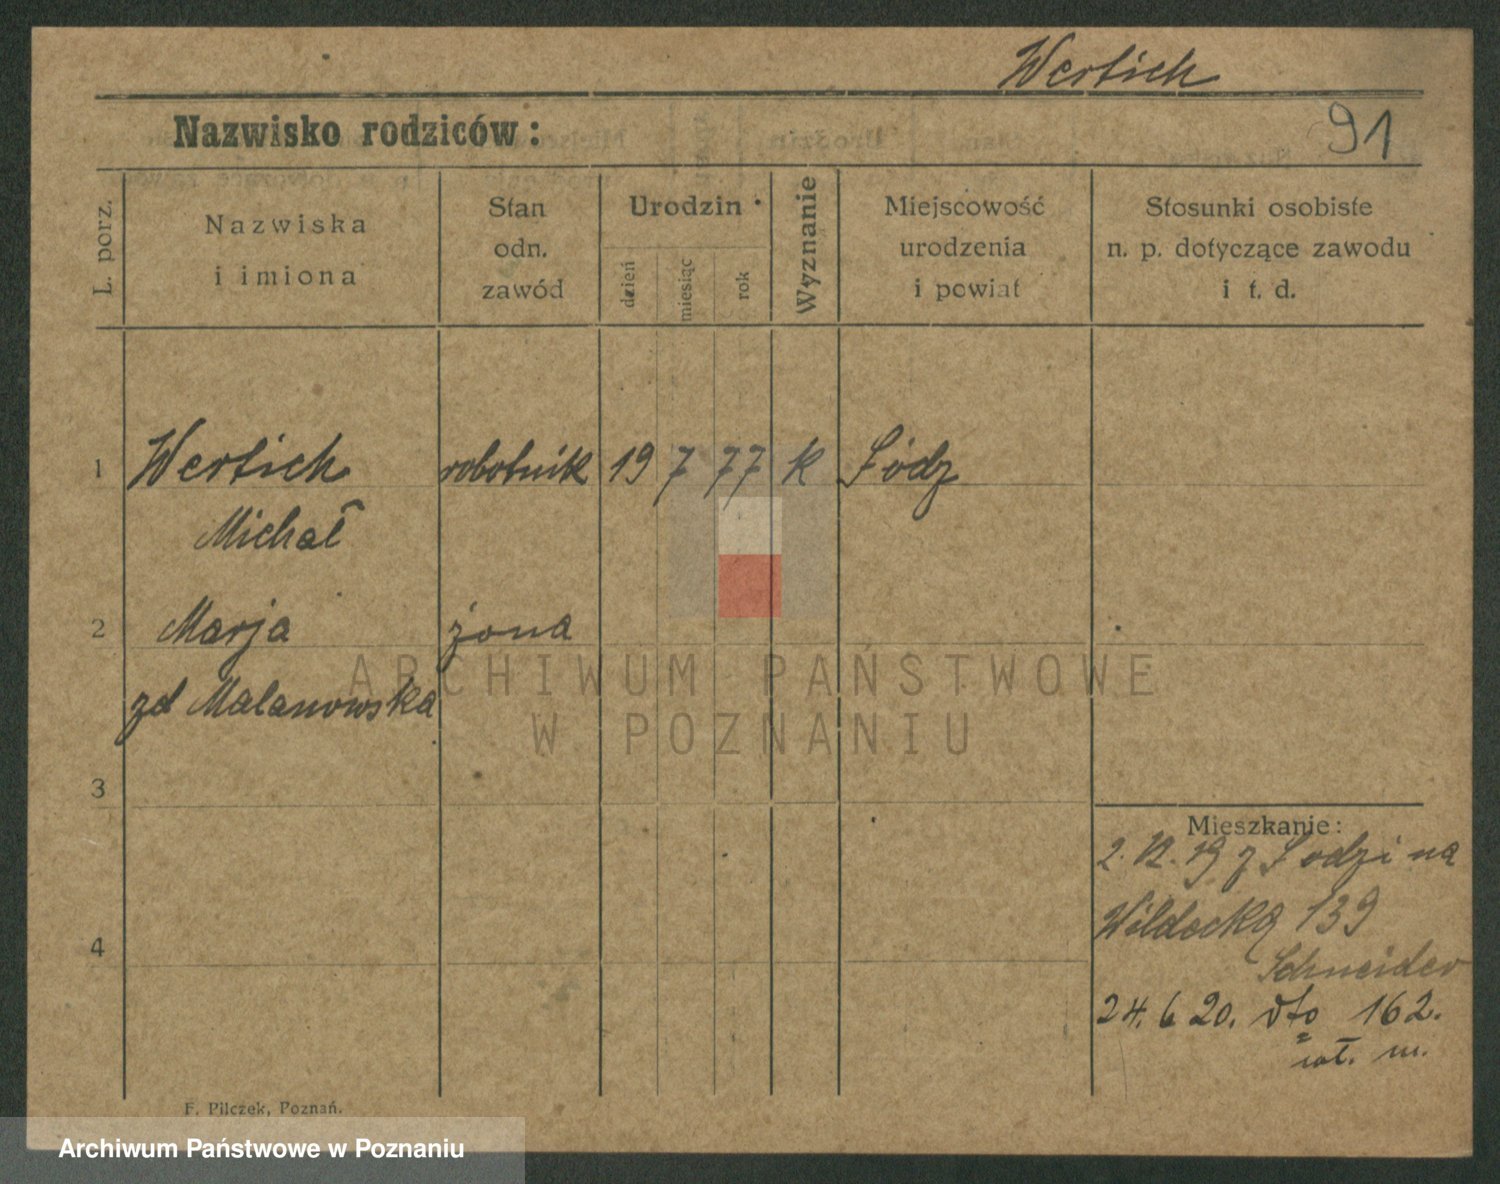 Wertich
Nazwisko rodziców:
91
L. porz.
Nazwiska
i imiona
Stan
odn.
zawód
Urodzin
dzień
miesiąc
rok
Wyznanie
Miejscowość
urodzenia
i powiat
Stosunki osobiste
n. p. dotyczące zawodu
i t. d.
1 Wertich robotnik 19 7 77 k Łódz
Michał
2 Marja żona
zd Malanowska
ARCHIWUM PAŃSTWOWE
W POZNANIU
3
Mieszkanie:
2. 12. 19 z Łodzi na
Wildecką 139
4
Schneider
24. 6 20. dto 162.
m.
F. Pilczek, Poznań.
Archiwum Państwowe w Poznaniu